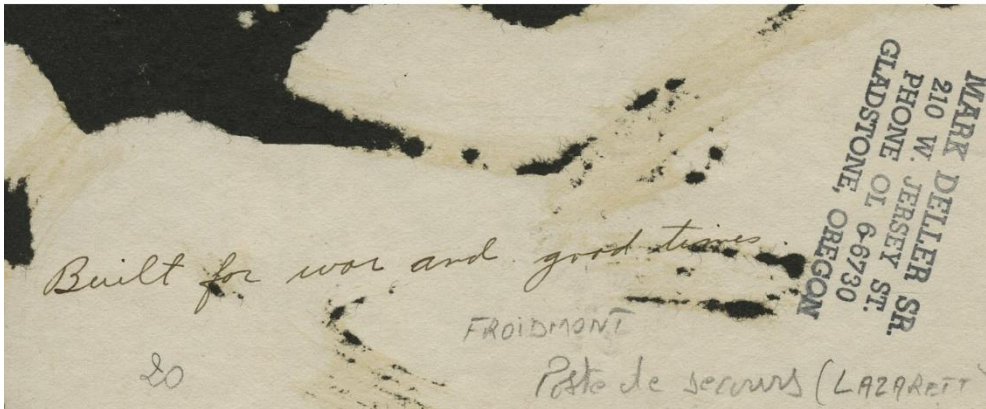 MARK DELLER SR.
210 W. JERSEY ST.
PHONE OL 6-6730
GLADSTONE, OREGON
Built for war and good times.
FROIDMONT
20
Poste de secours (LAZARETT